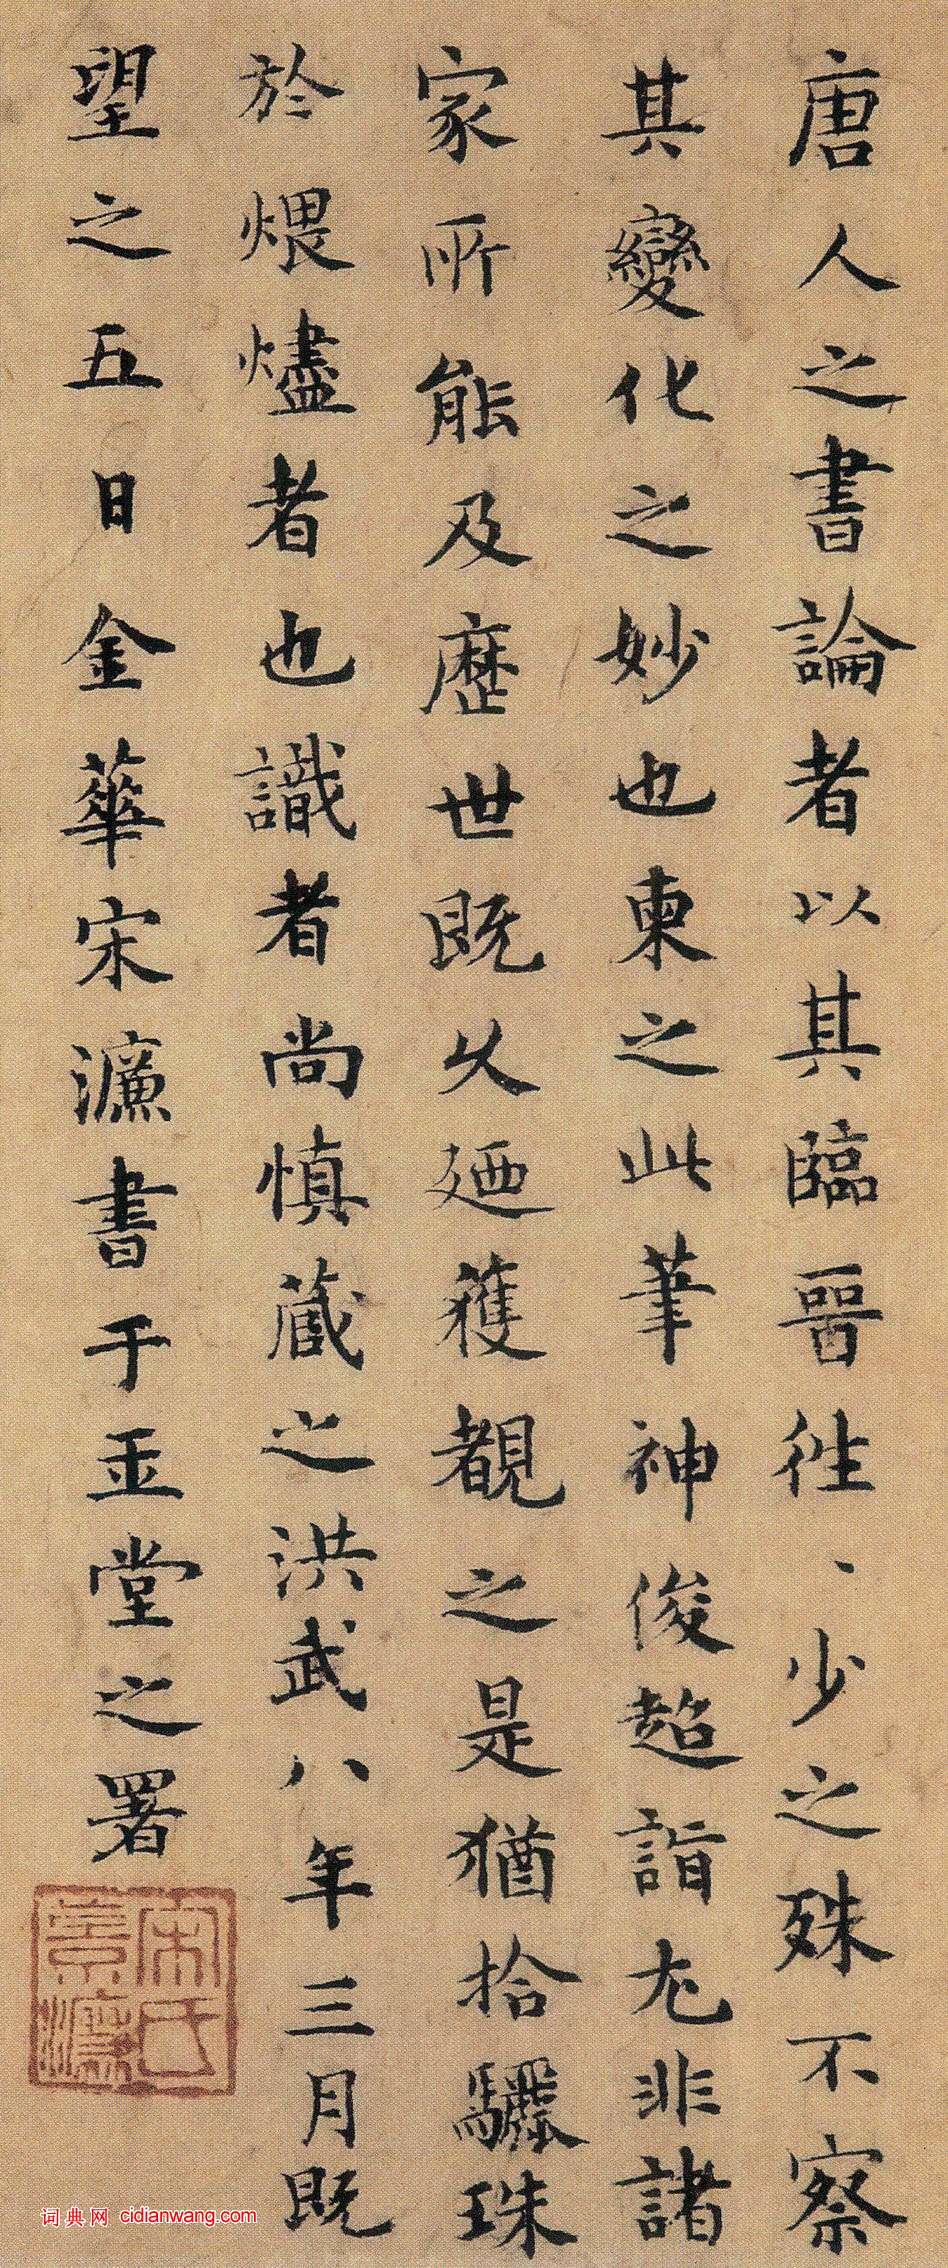 唐人之書論者以其臨晉往、少之殊不察
其變化之妙也柬之此筆神俊超詣尤非諸
家所能及歷世既久廼獲覩之是猶拾驪珠
於煨燼者也識者尚慎藏之洪武八年三月既
望之五日金華宋濂書于玉堂之署
宋氏
景濂
词典网 cidianwang.com